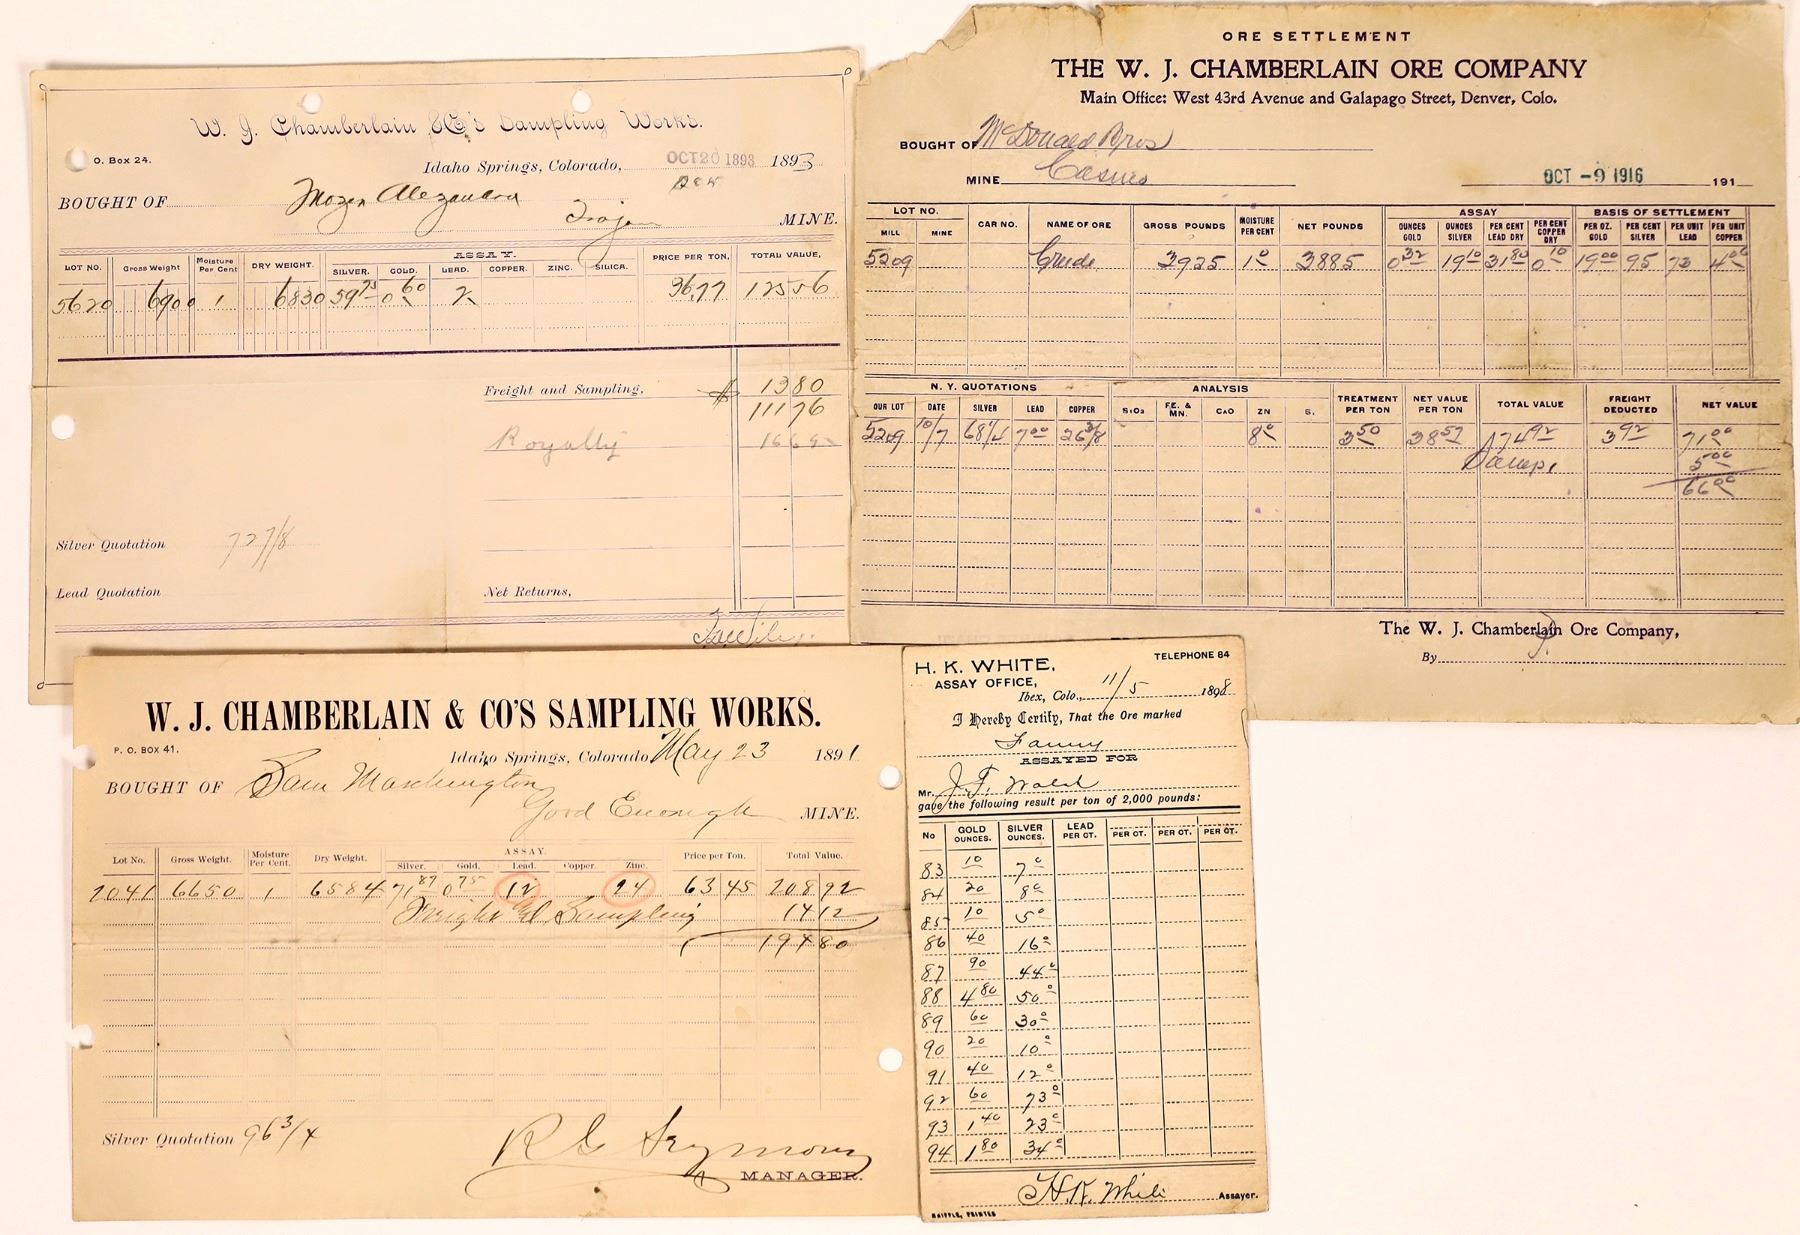 W. J. Chamberlain & Co's Sampling Works.
O. Box 24.
Idaho Springs, Colorado, OCT 20 1893 1893
BOUGHT OF Mozen Alexandra
Trojan MINE.
LOT NO. Gross Weight Moisture Per Cent DRY WEIGHT. ASSAY. SILVER. GOLD. LEAD. COPPER. ZINC. SILICA. PRICE PER TON, TOTAL VALUE,
5620 6900 1 6830 59 75 0 60 2 36.77 125 56
Freight and Sampling, 13 80
111 76
Royalty 16 69
Silver Quotation 72 7/8
Lead Quotation
Net Returns,
ORE SETTLEMENT
THE W. J. CHAMBERLAIN ORE COMPANY
Main Office: West 43rd Avenue and Galapago Street, Denver, Colo.
BOUGHT OF McDonald Bros
MINE Casnes
OCT -9 1916 191
LOT NO. MILL MINE CAR NO. NAME OF ORE GROSS POUNDS MOISTURE PER CENT NET POUNDS ASSAY OUNCES GOLD OUNCES SILVER PER CENT LEAD DRY PER CENT COPPER DRY BASIS OF SETTLEMENT PER OZ. GOLD PER CENT SILVER PER UNIT LEAD PER UNIT COPPER
5209 Crude 3925 1 0 3885 0 32 19 10 31 80 0 10 19 00 95 73 4 06
N. Y. QUOTATIONS ANALYSIS
OUR LOT DATE SILVER LEAD COPPER SiO2 FE. & MN. CaO ZN S. TREATMENT PER TON NET VALUE PER TON TOTAL VALUE FREIGHT DEDUCTED NET VALUE
5209 10/7 68 1/4 7 00 26 3/8 8 0 3 50 38 57 74 92 3 92 71 00
Samp. 5 00
66 00
The W. J. Chamberlain Ore Company,
By
W. J. CHAMBERLAIN & CO'S SAMPLING WORKS.
P. O. BOX 41.
Idaho Springs, Colorado May 23 1891
BOUGHT OF Sam Mashington
Good Enough MINE.
Lot No. Gross Weight. Moisture Per Cent. Dry Weight. ASSAY. Silver. Gold. Lead. Copper. Zinc. Price per Ton. Total Value.
2041 6650 1 6584 71 87 0 75 12 24 63 45 208 92
Freight & Sampling 14 12
194 80
Silver Quotation 96 3/4
R G Seymour
MANAGER.
H. K. WHITE,
TELEPHONE 84
ASSAY OFFICE,
Ibex, Colo., 11/5 1898
I Hereby Certify, That the Ore marked
Fanny
ASSAYED FOR
Mr. J. F. Walsh
gave the following result per ton of 2,000 pounds:
No GOLD OUNCES. SILVER OUNCES. LEAD PER CT. PER CT. PER CT. PER CT.
83 10 7 0
84 20 8 0
85 10 5 0
86 40 16 0
87 90 44 0
88 4 80 50 0
89 60 30 0
90 20 10 0
91 40 12 0
92 60 73 0
93 1 40 23 0
94 1 80 34 0
H. K. White Assayer.